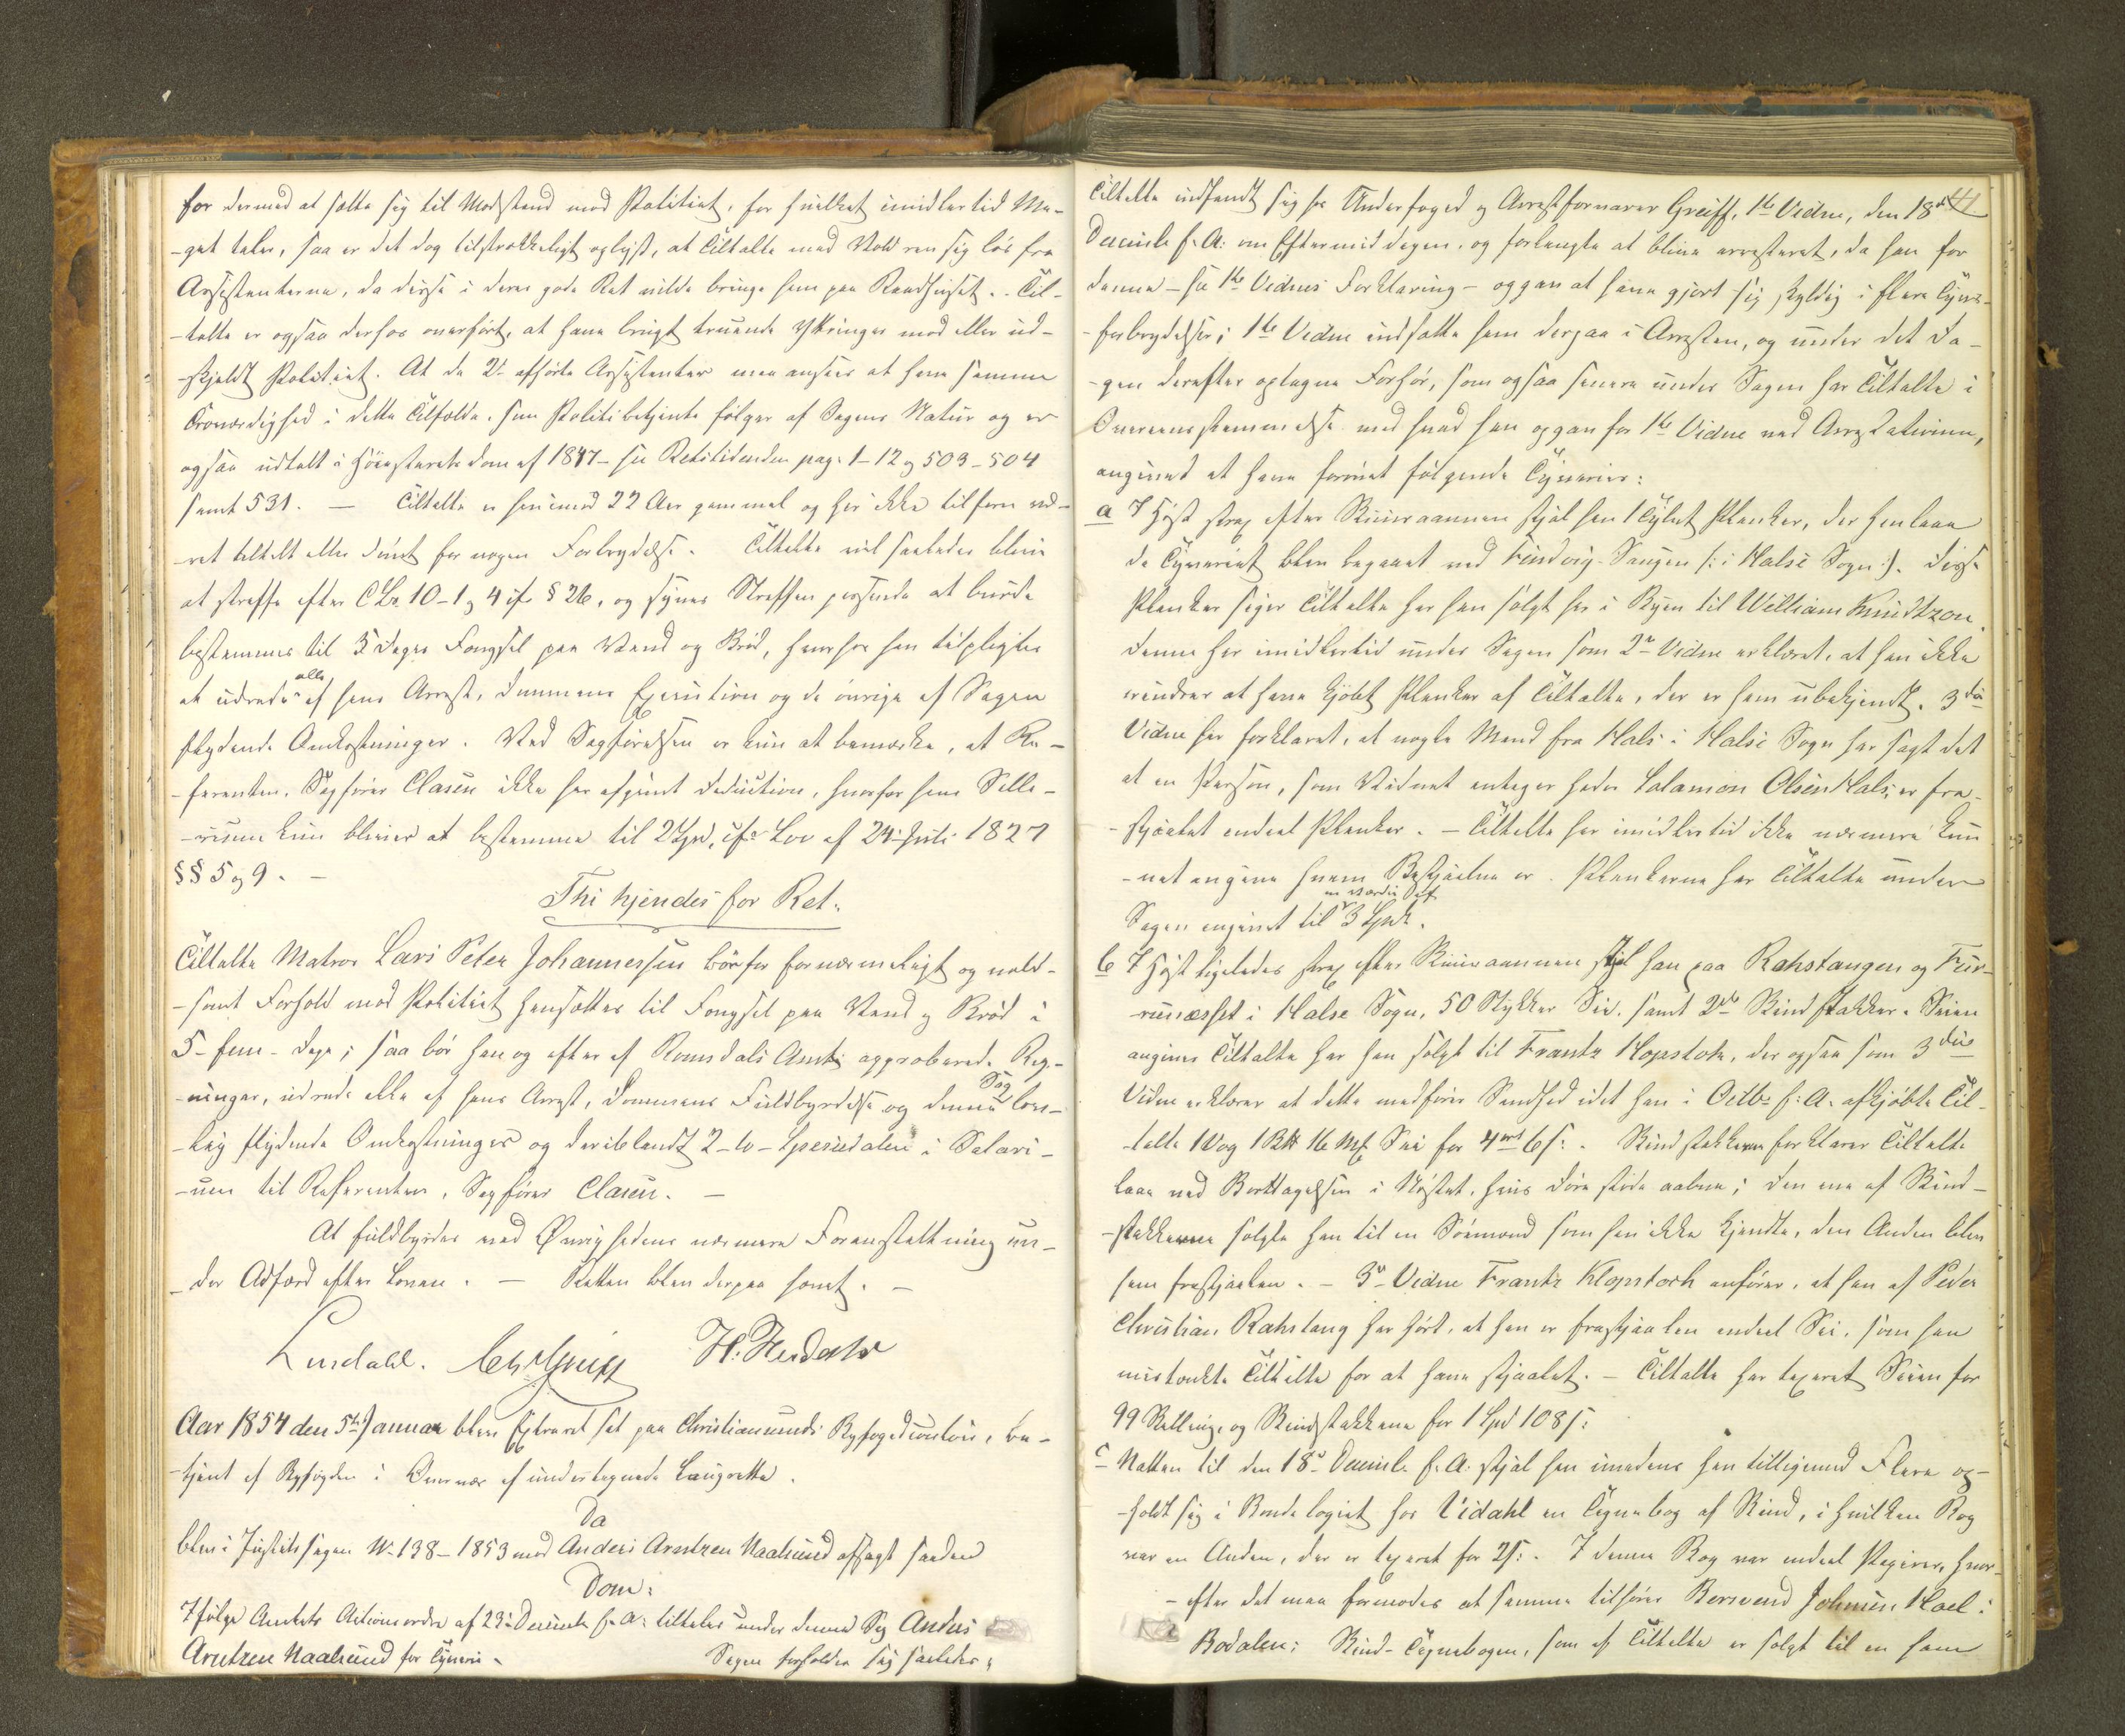 for dermed at sætte sig til Modstand mod Politiet, for hvilket imidlertid Me-
-get taler, saa er det dog tilstrækkeligt oplyst, at Tiltalte med Vold rev sig løs fra
Assistenterne, da disse i deres gode Ret vilde bringe ham paa Raadhuset. Til-
-talte er ogsaa derhos overført, at have brugt truende Yttringer mod eller ud-
-skjeldt Politiet. At de 2de afhørte Assistenter maa ansees at have samme
Troværdighed i dette Tilfælde som Politibetjente følger af Sagens Natur og er
ogsaa udtalt i Høiesteretsdom af 1847 - see Retstidenden pag. 1-12 og 503-504
samt 531. — Tiltalte er henimod 22 Aar gammel og har ikke tilforn væ-
-ret tiltalt eller dømt for nogen Forbrydelse. Tiltalte vil saaledes blive
at straffe efter C Lov 10-1 og 4 jfr § 26, og synes Straffen passende at burde
bestemmes til 5 Dages Fængsel paa Vand og Brød, hvorhos han tilpligtes
at udrede alle af hans Arrest, Dommens Execution og de øvrige af Sagen
flydende Omkostninger. Ved Sagførelsen er kun at bemærke, at Re-
-ferenten, Sagfører Clasen ikke har afgivet Deduction, hvorfor hans Sala-
-rium kun bliver at bestemme til 2 Spd, jfr Lov af 24 Juli 1827
§§ 5 og 9. —
Thi kjendes for Ret:
Tiltalte Matros Lars Peter Johannessen bør for fornærmeligt og vold-
-somt Forhold mod Politiet hensættes til Fængsel paa Vand og Brød i
5 - fem - Dage; saa bør han og efter af Romsdals Amt approberede Reg-
-ninger, udrede alle af hans Arrest, Dommens Fuldbyrdelse og denne Sag lov-
-lig flydende Omkostninger og deriblandt 2 - to - Speciedaler i Salari-
-um til Referenten, Sagfører Clasen. —
At fuldbyrdes ved Øvrighedens nærmere Foranstaltning un-
-der Adfærd efter Loven. — Retten blev derpaa hævet. —
Lindahl. H. Heide
Aar 1854 den 5te Januar blev Extraret sat paa Christiansunds Byfogedcontoir, be-
-tjent af Byfogden i Overvær af undertegnede Laugrette.
Da
blev i Justitssagen No 138-1853 mod Anders Arntzen Naalsund afsagt saadan
Dom:
Ifølge Amtets Actionsordre af 23 Decembr f. A. tiltales under denne Sag Anders
Arntzen Naalsund for Tyverie. Sagen forholder sig saaledes:
41
Tiltalte indfandt sig hos Underfoged og Arrestforvarer Greiff, 1ste Vidne, den 18de
Decembr f. A. om Eftermiddagen, og forlangte at blive arresteret, da han for
denne - see 1ste Vidnes Forklaring - opgav at have gjort sig skyldig i flere Tyvs-
-forbrydelser; 1ste Vidne indsatte ham derpaa i Arresten, og under det Da-
-gen derefter optagne Forhør, som ogsaa senere under Sagen har Tiltalte i
Overeensstemmelse med hvad han opgav for 1ste Vidne ved Arrestationen,
angivet at have forøvet følgende Tyverier:
a I Høst strax efter Skuuraannen stjal han 1 Tylvt Planker, der henlaae
da Tyveriet blev begaaet ved Findvig-Saugen (: i Halse Sogn :). Disse
Planker siger Tiltalte har han solgt her i Byen til William Knudtzon.
Denne har imidlertid under Sagen som 2de Vidne erklæret, at han ikke
erindrer at have kjøbt Planker af Tiltalte, der er ham ubekjendt. 3die
Vidne har forklaret, at nogle Mænd fra Hals i Halse Sogn har sagt det
at en Person, som Vidnet antager heder Salamon Olsen Hals, er fra-
-stjaalet endeel Planker. — Tiltalte har imidlertid ikke nærmere kun-
-net angive hvem Bestjaalne er. Plankerne har Tiltalte under
Sagen angivet til en Værdie af 3 Spd.
b I Høst ligeledes strax efter Skuuraannen stjal han paa Rahstangen og Fur-
-runæsset i Halse Sogn, 50 Stykker Sei, samt 2de Skindstakker. Seien
angiver Tiltalte har han solgt til Frantz Klopstok, der ogsaa som 3die
Vidne erklærer at dette medfører Sandhed idet han i Octbr f. A. afkjøbte Til-
-talte 1 Vog 1 B℔ 16 Mk Sei for 4 ort 6 s. Skindstakkerne forklarer Tiltalte
laae ved Borttagelsen i Nøstet, hvis Døre stode aabne; den ene af Skind-
-stakkerne solgte han til en Sømand som han ikke kjendte, den Anden blev
ham frastjaalen. — 3de Vidne Frantz Klopstock anfører, at han af Peder
Christian Rahstang har hørt, at han er frastjaalen endeel Sei, som han
mistænkte Tiltalte for at have stjaalet. — Tiltalte har taxeret Seien for
99 Skilling, og Skindstakkene for 1 Spd 108 s:
c Natten til den 18de Decembr f. A. stjal han imedens han tilligemed Flere op-
-holdt sig i Bondelogiet hos Vidahl en Tegnebog af Skind, i hvilken Bog
var en Anden, der er taxeret for 2 s:. I denne Bog var endeel Papirer, hvor-
-efter det maa formodes at samme tilhører Johnsen Hoel i
Bodalen: Skind-Tegnebogen, som af Tiltalte er solgt til en ham